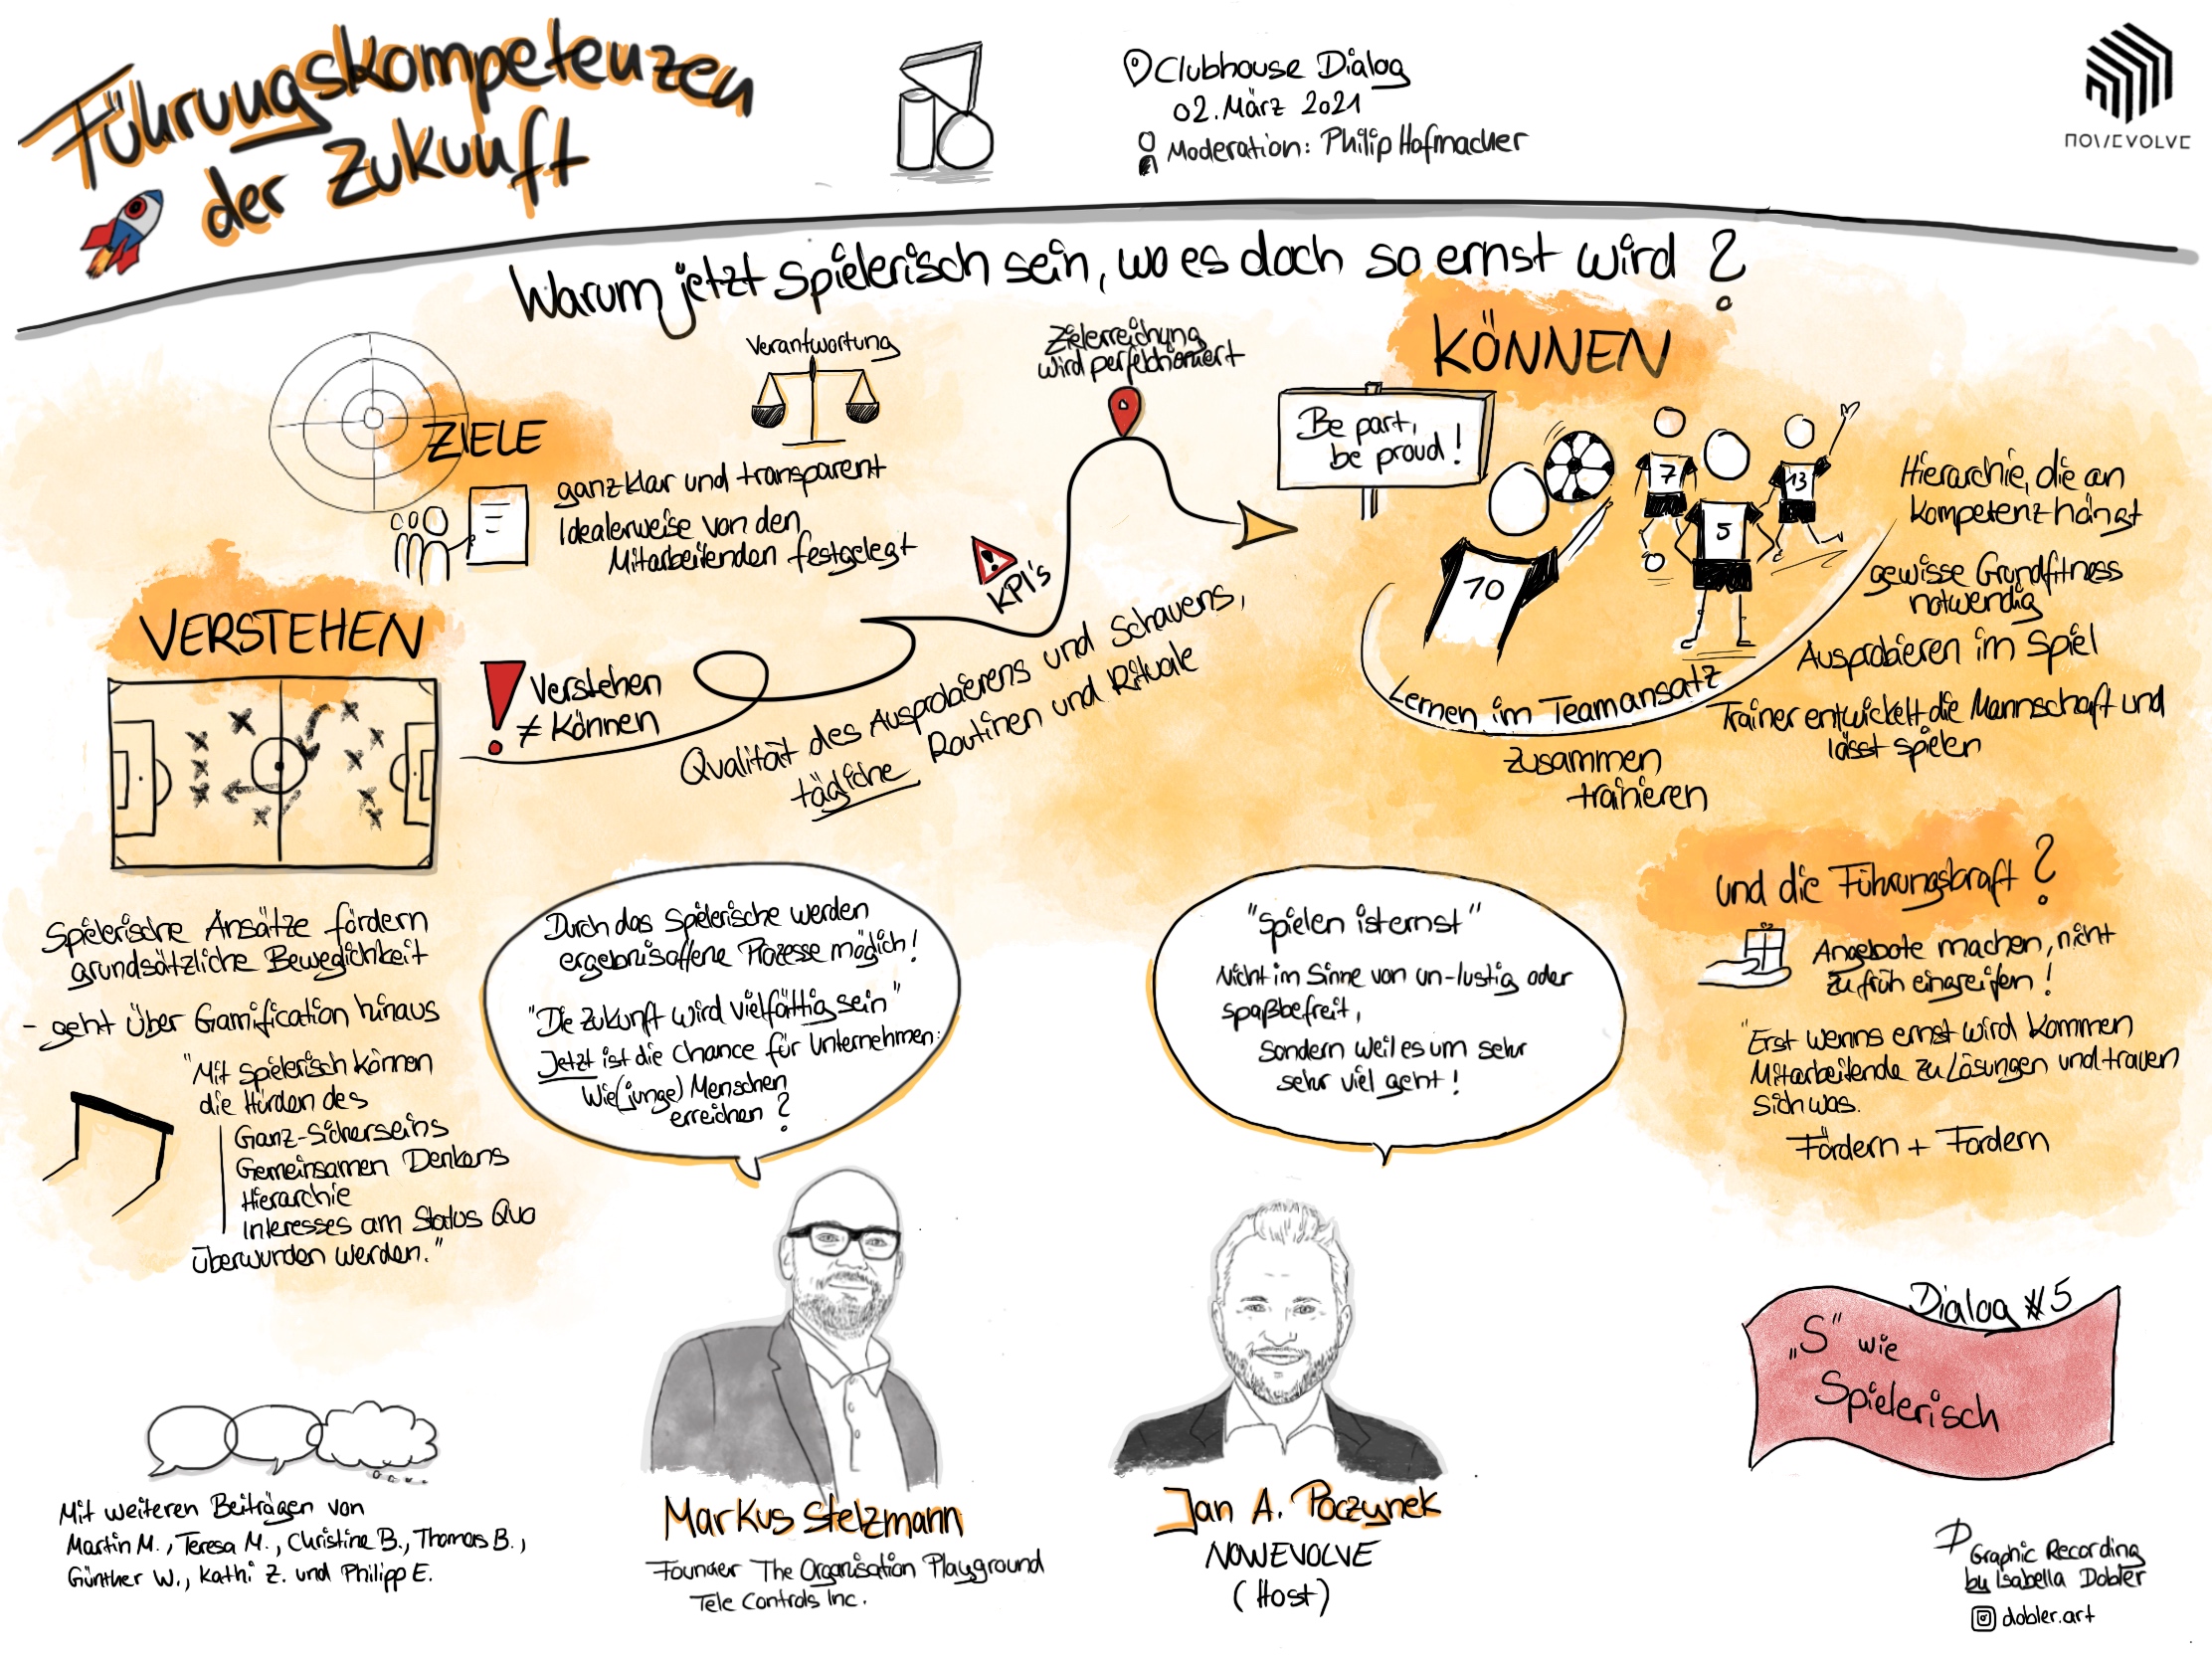 Führungskompetenzen
der Zukunft
Clubhouse Dialog
02. März 2021
Moderation: Philip Hofmacher
NOWEVOLVE
Warum jetzt spielerisch sein, wo es doch so ernst wird?
ZIELE
ganz klar und transparent
Idealerweise von den
Mitarbeitenden festgelegt
Verantwortung
Zielerreichung
wird perfektioniert
KPI's
VERSTEHEN
Verstehen
≠ Können
Qualität des Ausprobierens und Schauens,
tägliche Routinen und Rituale
KÖNNEN
Be part,
be proud!
10
7
5
13
Lernen im Teamansatz
Hierarchie, die an
Kompetenz hängt
gewisse Grundfitness
notwendig
Ausprobieren im Spiel
Trainer entwickelt die Mannschaft und
lässt spielen
zusammen
trainieren
Spielerische Ansätze fördern
grundsätzliche Beweglichkeit
- geht über Gamification hinaus
"Mit spielerisch können
die Hürden des
Ganz-Sicherseins
Gemeinsamen Denkens
Hierarchie
Interesses am Status Quo
überwunden werden."
Durch das Spielerische werden
ergebnisoffene Prozesse möglich!
"Die Zukunft wird vielfältig sein"
Jetzt ist die Chance für Unternehmen:
Wie (junge) Menschen
erreichen?
"Spielen ist ernst"
Nicht im Sinne von un-lustig oder
spaßbefreit,
sondern weil es um sehr
sehr viel geht!
und die Führungskraft?
Angebote machen, nicht
zu früh eingreifen!
"Erst wenns ernst wird kommen
Mitarbeitende zu Lösungen und trauen
sich was.
Fördern + Fordern
Dialog #5
„S" wie
Spielerisch
Mit weiteren Beiträgen von
Martin M., Teresa M., Christine B., Thomas B.,
Günther W., Kathi Z. und Philipp E.
Markus Stelzmann
Founder The Organisation Playground
Tele Controls Inc.
Jan A. Poczynek
NOWEVOLVE
(Host)
Graphic Recording
by Isabella Dobler
dobler.art